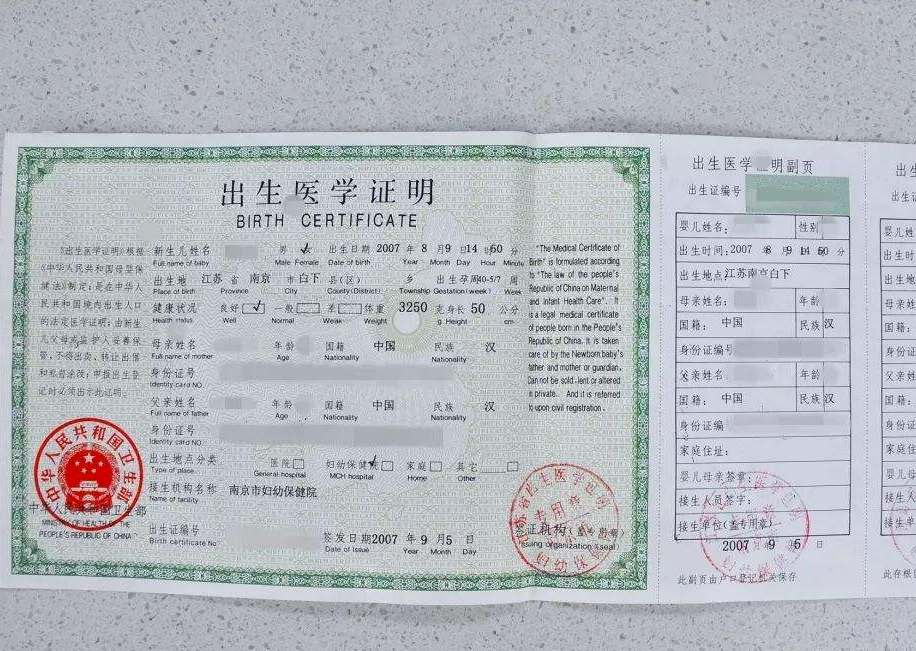 出生医学证明
BIRTH CERTIFICATE
《出生医学证明》根据
《中华人民共和国母婴保
健法》制定，是在中华人
民共和国境内出生人口
的法定医学证明，由新生
儿父母或监护人妥善保
管，不得出卖、转让出借
和私自涂改，申报出生登
记时必须出示此证明。
新生儿姓名 男 女 出生日期 2007 年 8 月 9 日 14 时 50 分
Full name of baby Male Female Date of birth Year Month Day Hour Minute
出生地 江苏 省 南京 市 白下 县(区) 出生孕周 40-5/7 周
Place of birth Province City County(District) Township Gestation(week) Week
健康状况 良好 一般 差 体重 3250 克 身长 50 公分
Health status Well Normal Weak Weight g Height cm
母亲姓名 年龄 国籍 中国 民族 汉
Full name of mother Age Nationality Nationality
身份证号
Identity card NO
父亲姓名 年龄 国籍 中国 民族 汉
Full name of father Age Nationality Nationality
身份证号
Identity card NO
出生地点分类 医院 妇幼保健院 家庭 其它
Type of place General hospital MCH hospital Home Other
接生机构名称 南京市妇幼保健院
Name of facility
出生证编号 签发日期 2007 年 9 月 5 日
Birth certificate No Date of Issue Year Month Day
"The Medical Certificate of
Birth" is formulated according
to "The law of the people's
Republic of China on Maternal
and Infant Health Care". It
is a legal medical certificate
of people born in the People's
Republic of China. It is taken
care of by the Newborn baby's
father and mother or guardian.
Can not be sold , lent or altered
in private. And it is referred
to upon civil registration.
中华人民共和国卫生部
中华人民共和国卫生部
MINISTRY OF HEALTH OF THE
PEOPLE'S REPUBLIC OF CHINA
专用章
妇幼保
证机构(盖专用章)
Issuing organization (seal)
出生医学 明副页
出生证编号
婴儿姓名: 性别
出生时间: 2007 8 9 14 50 分
出生地点 江苏南京白下
母亲姓名: 年龄
国籍: 中国 民族 汉
身份证编号
父亲姓名 年龄
国籍: 中国 民族 汉
身份证编
家庭住址:
婴儿母亲签章:
接生人员签字:
接生单位(盖专用章)
2007 年 9 月 5 日
此副页由户口登记机关保存
出生
出生证
婴儿姓
出生时
出生地
母亲姓
国籍:
身份证
父亲姓
国籍:
身份证
家庭住
婴儿母
接生人
接生单
此存根